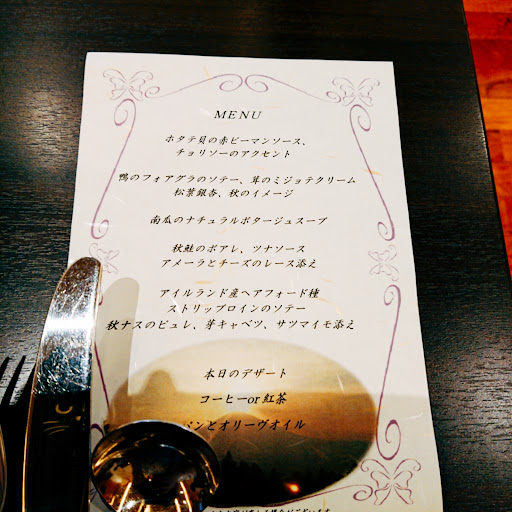 MENU
ホタテ貝の赤ピーマンソース、
チョリソーのアクセント
鴨のフォアグラのソテー、茸のミジョテクリーム
松葉銀杏、秋のイメージ
南瓜のナチュラルポタージュスープ
秋鮭のポアレ、ツナソース
アメーラとチーズのレース添え
アイルランド産ヘアフォード種
ストリップロインのソテー
秋ナスのピュレ、芽キャベツ、サツマイモ添え
本日のデザート
コーヒーor紅茶
パンとオリーヴオイル